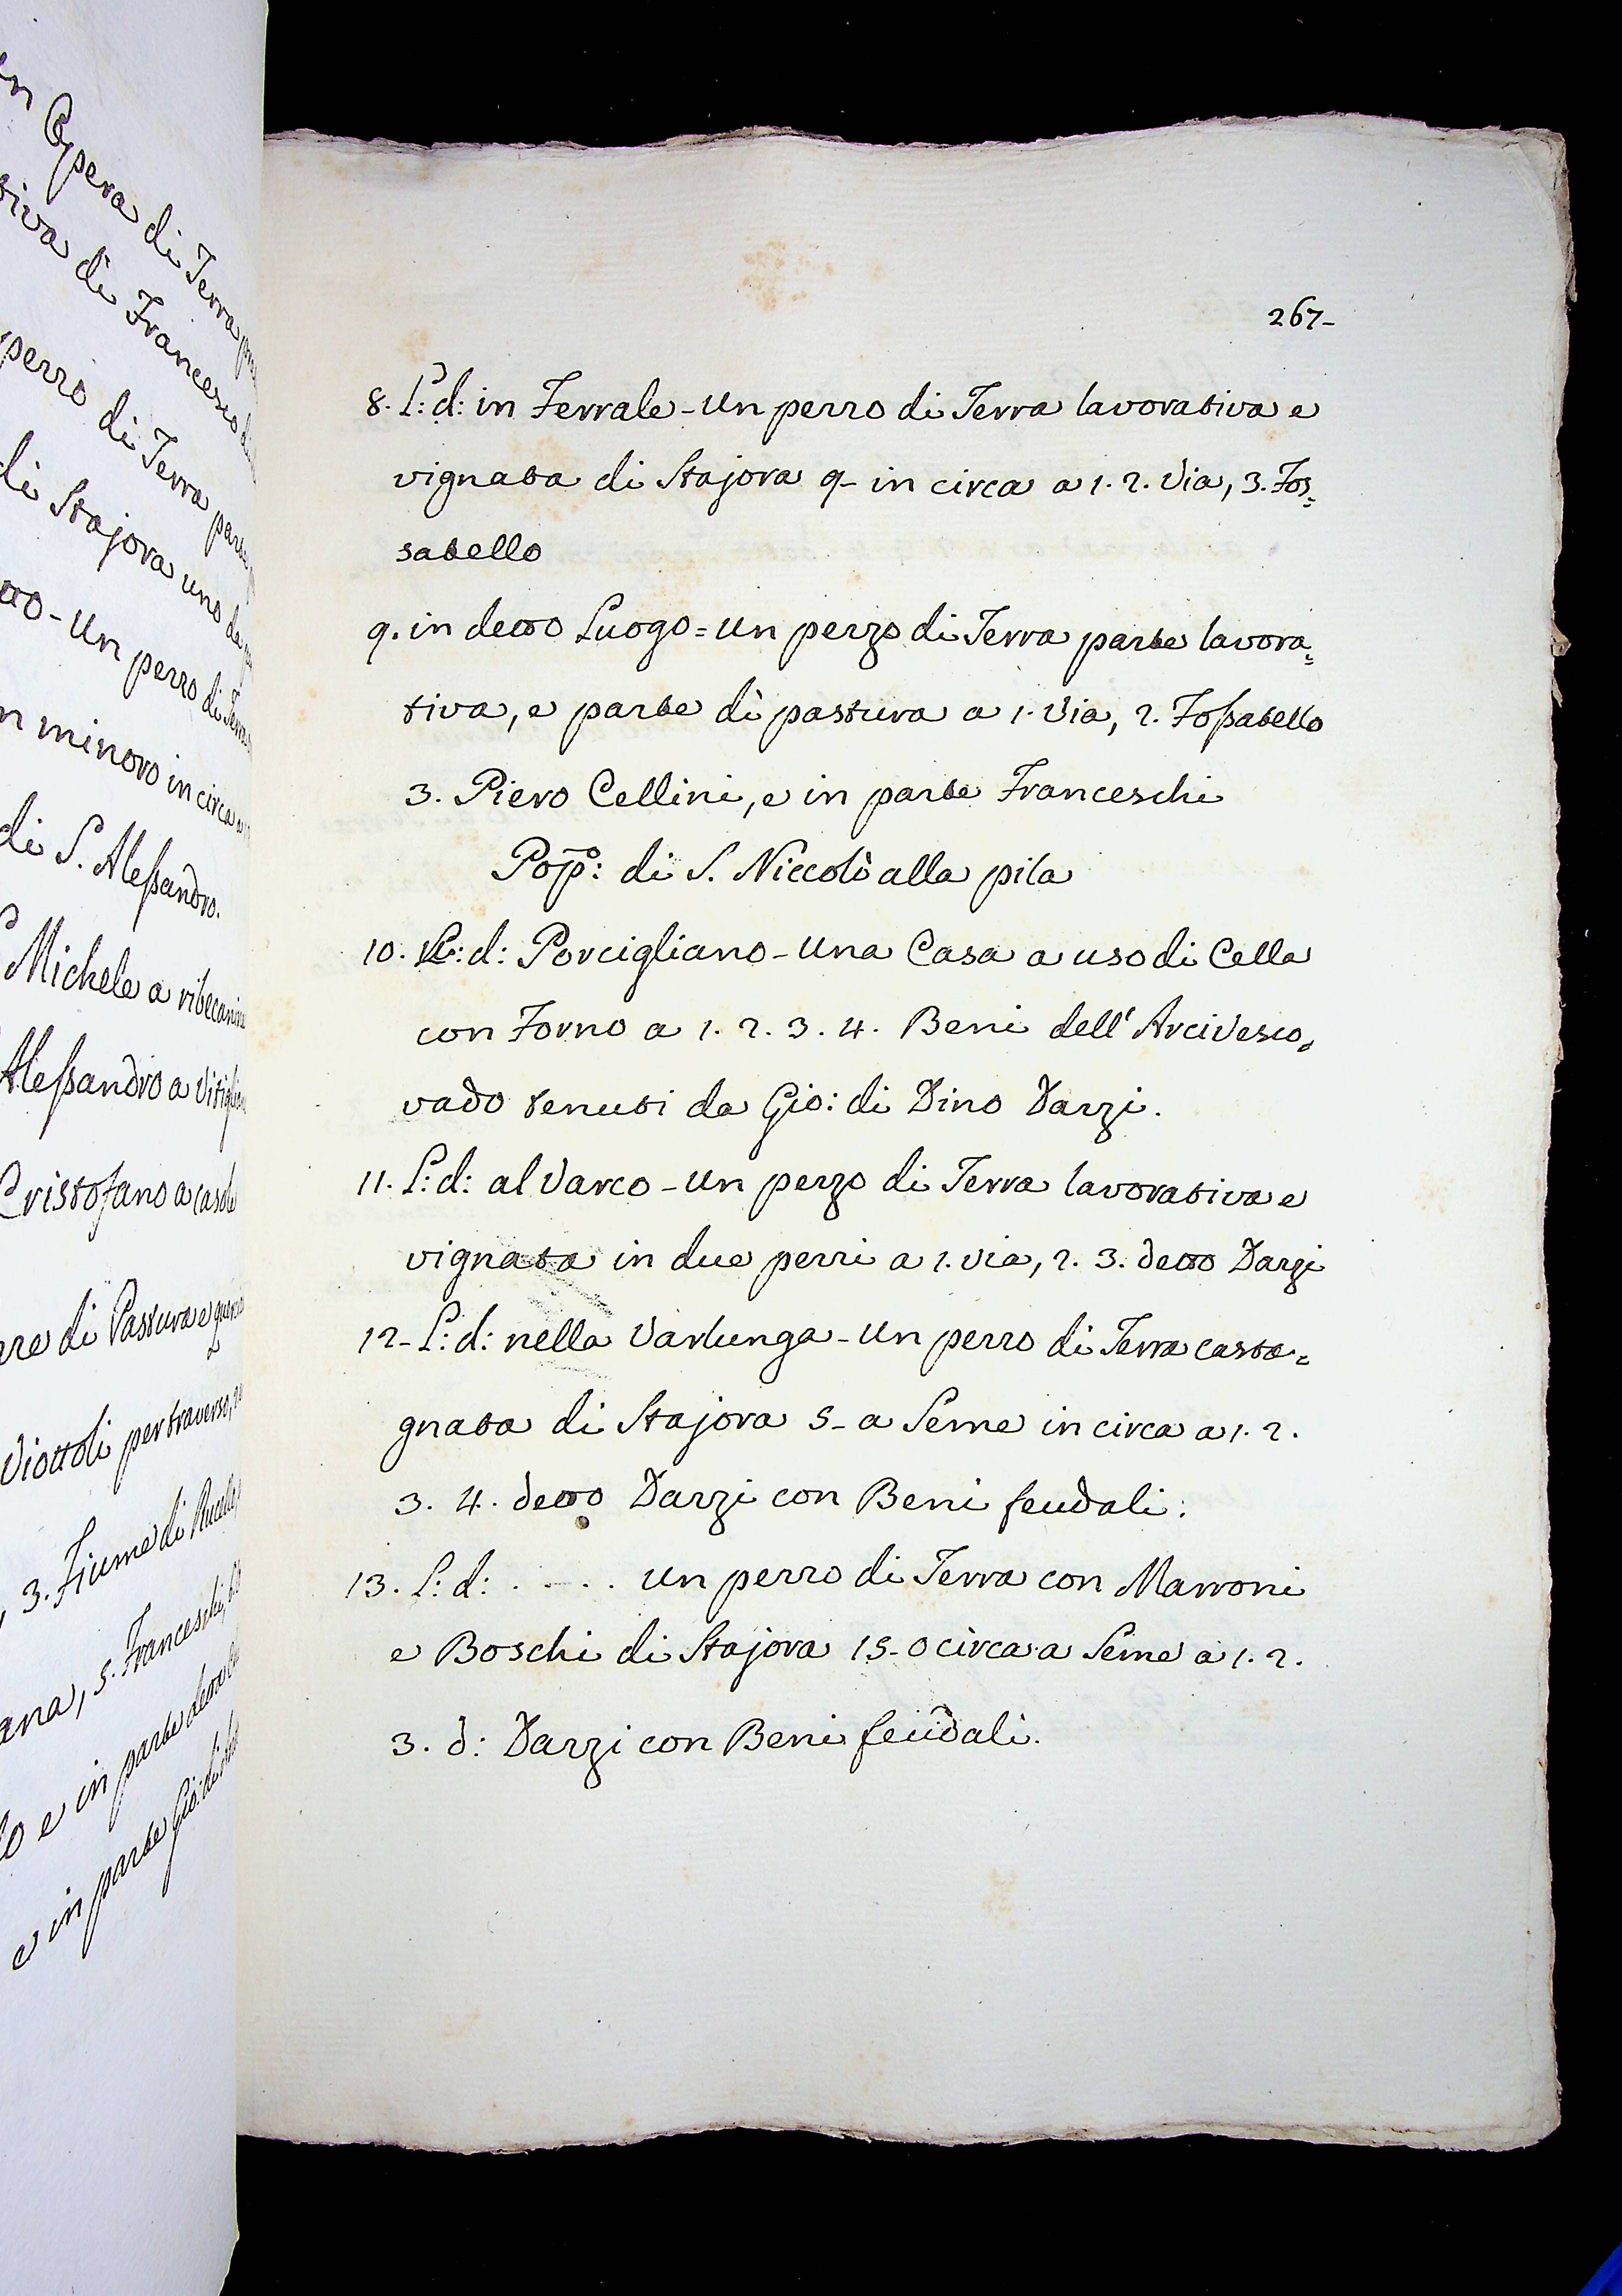 267-
8. L: d: in Ferrale - un pezzo di Terra lavorativa e
vignata di Stajora 9- in circa a 1. 2. Via, 3. Fos=
satello
9. in detto Luogo = un pezzo di Terra parte lavora=
tiva, e parte di pastura a 1. Via, 2. Foſsatello
3. Piero Cellini, e in parte Franceschi
Pop̃o: di S. Niccolò alla pila
10. L: d: Porcigliano - una Casa a uso di Cella
con Forno a 1. 2. 3. 4. Beni dell' Arcivesco=
vado tenuti da Gio: di Dino Darzi.
11. L: d: al Varco - un pezzo di Terra lavorativa e
vignata in due pezzi a 1. via, 2. 3. detto Darzi
12- L: d: nella Varlunga - un pezzo di Terra casta=
gnata di Stajora 5- a Seme in circa a 1. 2.
3. 4. detto Darzi con Beni feudali:
13. L: d: . . . . . un pezzo di Terra con Marroni
e Boschi di Stajora 15- o circa a Seme a 1. 2.
3. d: Darzi con Beni feudali.
Opera di Terra
tiva di Francesco
pezzo di Terra
di Stajora uno
un pezzo di
minoro in circa
di S. Aleſsandro.
Michele a
Aleſsandro a
Cristofano a
di Pastura e
Viottoli per traverso,
3. Fiume di
5. Franceschi,
e in parte
e in parte Gio: di